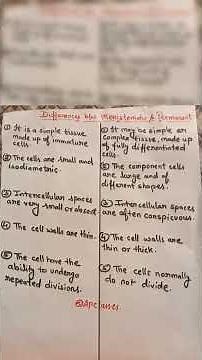 Differences b/w Meristematic & Permanent
① It is a simple tissue made up of immature cells.
② The cells are small and isodiametric.
③ Intercellular spaces are very small or absent.
④ The cell walls are thin.
⑤ The cell have the ability to undergo repeated divisions.
① It may be simple or complex tissue, made up of fully differentiated cells.
② The component cells are large and of different shapes.
③ Intercellular spaces are often conspicuous.
④ The cell walls are thin or thick.
⑤ The cells normally do not divide.